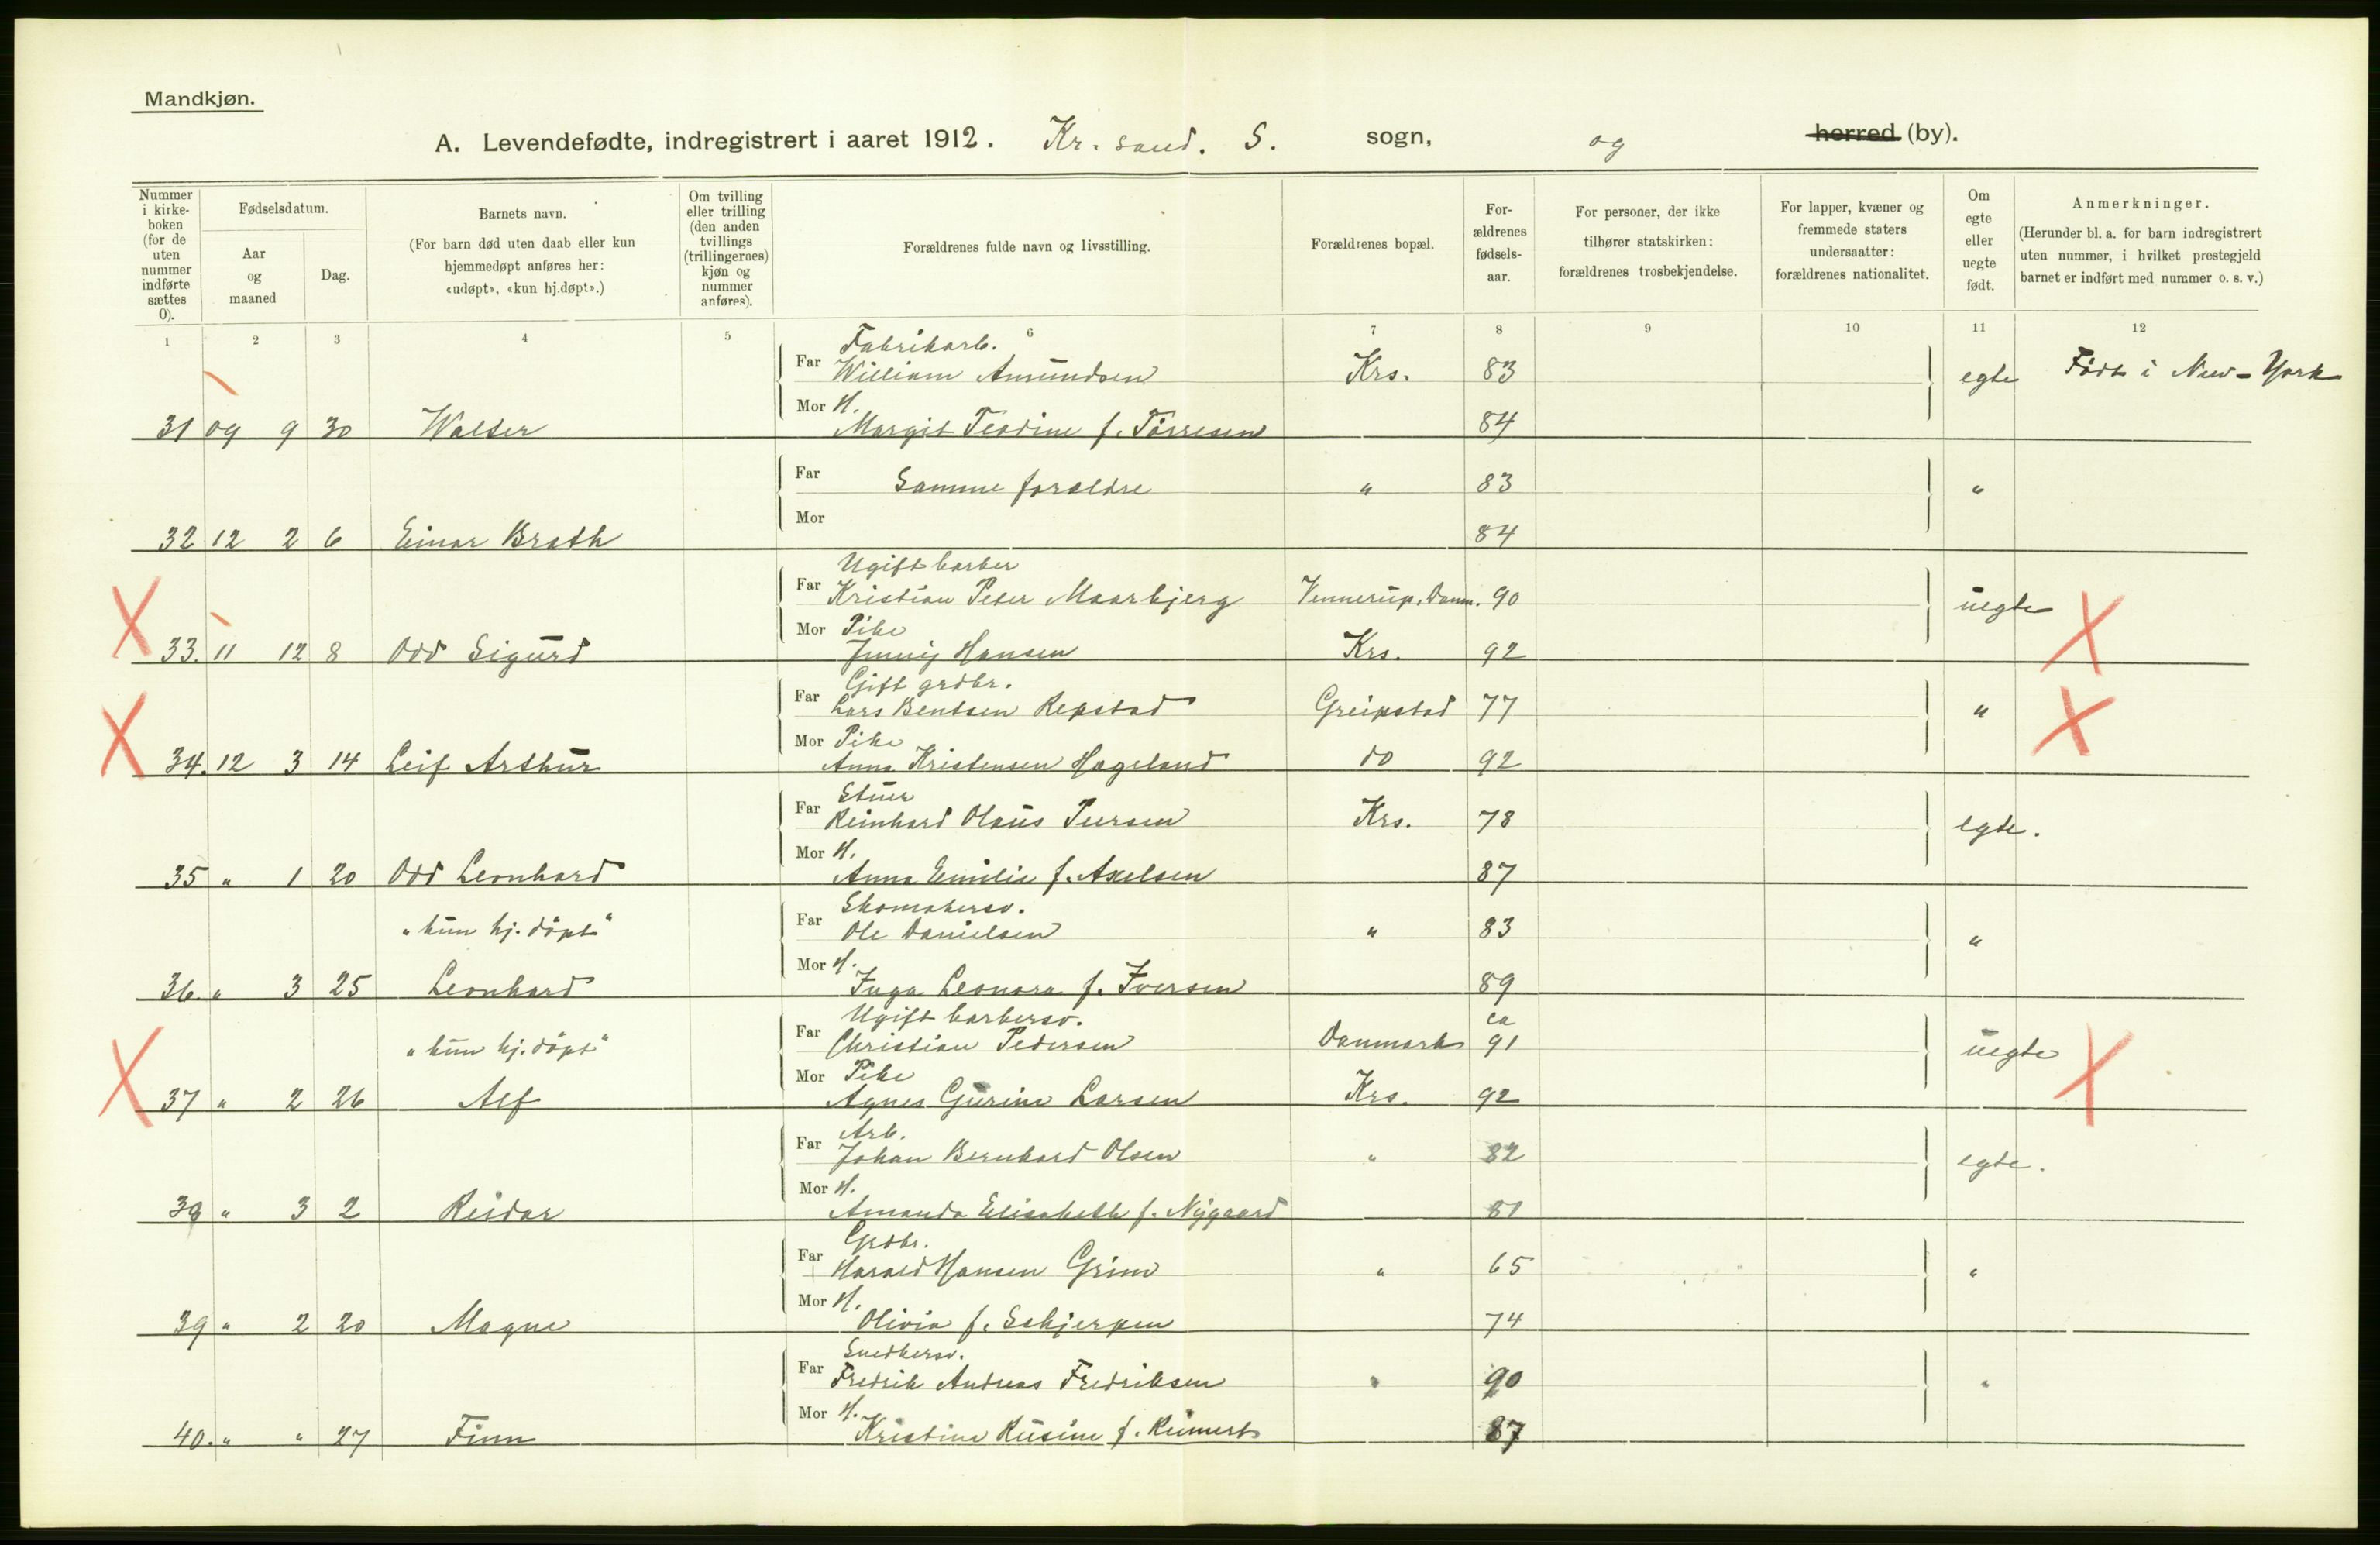 Mandkjøn.
A. Levendefødte, indregistrert i aaret 1912. Kr. sand. S. sogn, og herred (by).
Nummer i kirkeboken (for de uten nummer indførte sættes 0).
Fødselsdatum.
Aar og maaned
Dag.
Barnets navn.
(For barn død uten daab eller kun hjemmedøpt anføres her: «udøpt», «kun hj.døpt».)
Om tvilling eller trilling (den anden tvillings (trillingernes) kjøn og nummer anføres).
Forældrenes fulde navn og livsstilling.
Forældrenes bopæl.
Forældrenes fødselsaar.
For personer, der ikke tilhører statskirken: forældrenes trosbekjendelse.
For lapper, kvæner og fremmede staters undersaatter: forældrenes nationalitet.
Om egte eller uegte født.
Anmerkninger.
(Herunder bl. a. for barn indregistrert uten nummer, i hvilket prestegjeld barnet er indført med nummer o. s. v.)
1 2 3 4 5 6 7 8 9 10 11 12
Fabrikarb.
Far William Amundsen Krs. 83 egte Født i New-York
Mor H.
31 09 9 30 Walter Margit Teodine f. Tørresen 84
Far Samme forældre " 83 "
Mor
32 12 2 6 Einar Brath 84
Ugift barber
Far Kristian Peter Maarbjerg Vennerup, Danm. 90 uegte
Mor Pike
33. 11 12 8 Odd Sigurd Jenny Hansen Krs. 92
Gift grdbr.
Far Lars Bentsen Repstad Greipstad 77 "
Mor Pike
34. 12 3 14 Leif Arthur Anna Kristensen Hægeland do 92
Stuer
Far Reinhard Olaus Peersen Krs. 78 egte.
Mor H.
35 " 1 20 Odd Leonhard Anna Emilie f. Axelsen 87
Skomakersv.
"kun hj. døpt" Far Ole Danielsen " 83 "
Mor H.
36. " 3 25 Leonhard Inga Leonora f. Iversen 89
Ugift barbersv. ca
"kun hj. døpt" Far Christian Pedersen Danmark 91 uegte
Mor Pike
37 " 2 26 Alf Agnes Gurine Larsen Krs. 92
Arb.
Far Johan Bernhard Olsen " 82 egte.
Mor H.
38 " 3 2 Reidar Amanda Elisabeth f. Nygaard 81
Grdbr.
Far Harald Hansen Grim " 65 "
Mor H.
39 " 2 20 Magne Olivia f. Schjerpen 74
Snedkersv.
Far Fredrik Andreas Fredriksen " 90 "
Mor H.
40. " " 27 Finn Kristine Rusine f. Reinerts 87